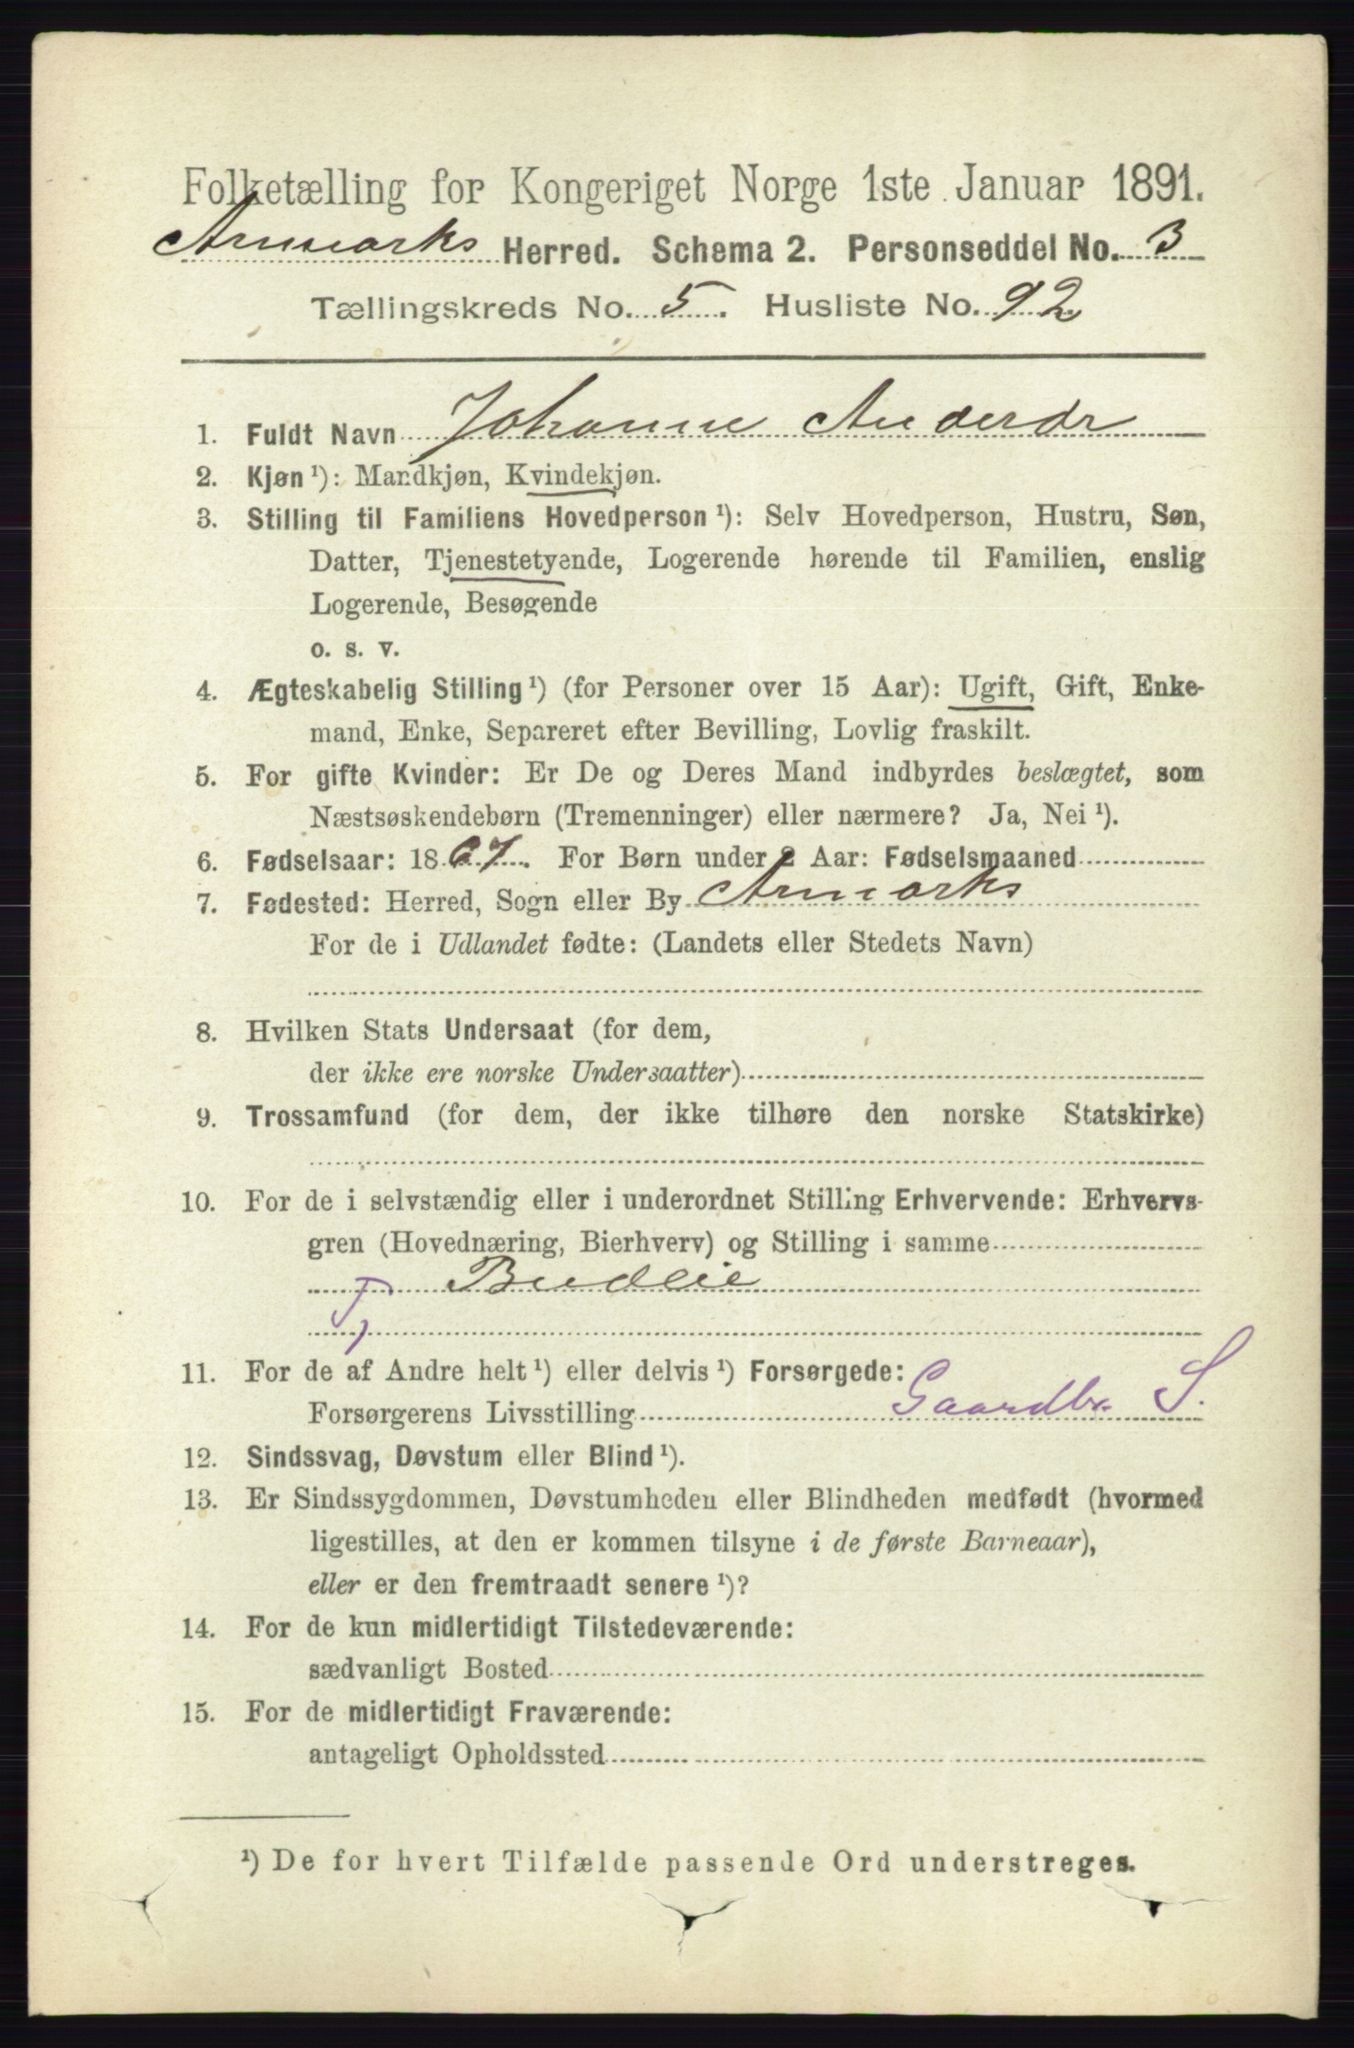 Folketælling for Kongeriget Norge 1ste Januar 1891.
Aremarks Herred. Schema 2. Personseddel No. 3
Tællingskreds No. 5. Husliste No. 92
1. Fuldt Navn Johanne Andersdr
2. Kjøn ¹): Mandkjøn, Kvindekjøn.
3. Stilling til Familiens Hovedperson ¹): Selv Hovedperson, Hustru, Søn,
Datter, Tjenestetyende, Logerende hørende til Familien, enslig
Logerende, Besøgende
o. s. v.
4. Ægteskabelig Stilling ¹) (for Personer over 15 Aar): Ugift, Gift, Enke-
mand, Enke, Separeret efter Bevilling, Lovlig fraskilt.
5. For gifte Kvinder: Er De og Deres Mand indbyrdes beslægtet, som
Næstsøskendebørn (Tremenninger) eller nærmere? Ja, Nei ¹).
6. Fødselsaar: 1867. For Børn under 2 Aar: Fødselsmaaned
7. Fødested: Herred, Sogn eller By Aremarks
For de i Udlandet fødte: (Landets eller Stedets Navn)
8. Hvilken Stats Undersaat (for dem,
der ikke ere norske Undersaatter)
9. Trossamfund (for dem, der ikke tilhøre den norske Statskirke)
10. For de i selvstændig eller i underordnet Stilling Erhvervende: Erhvervs-
gren (Hovednæring, Bierhverv) og Stilling i samme
T Budeie
11. For de af Andre helt ¹) eller delvis ¹) Forsørgede:
Forsørgerens Livsstilling Gaardbr. S.
12. Sindssvag, Døvstum eller Blind ¹).
13. Er Sindssygdommen, Døvstumheden eller Blindheden medfødt (hvormed
ligestilles, at den er kommen tilsyne i de første Barneaar),
eller er den fremtraadt senere ¹)?
14. For de kun midlertidigt Tilstedeværende:
sædvanligt Bosted
15. For de midlertidigt Fraværende:
antageligt Opholdssted
¹) De for hvert Tilfælde passende Ord understreges.